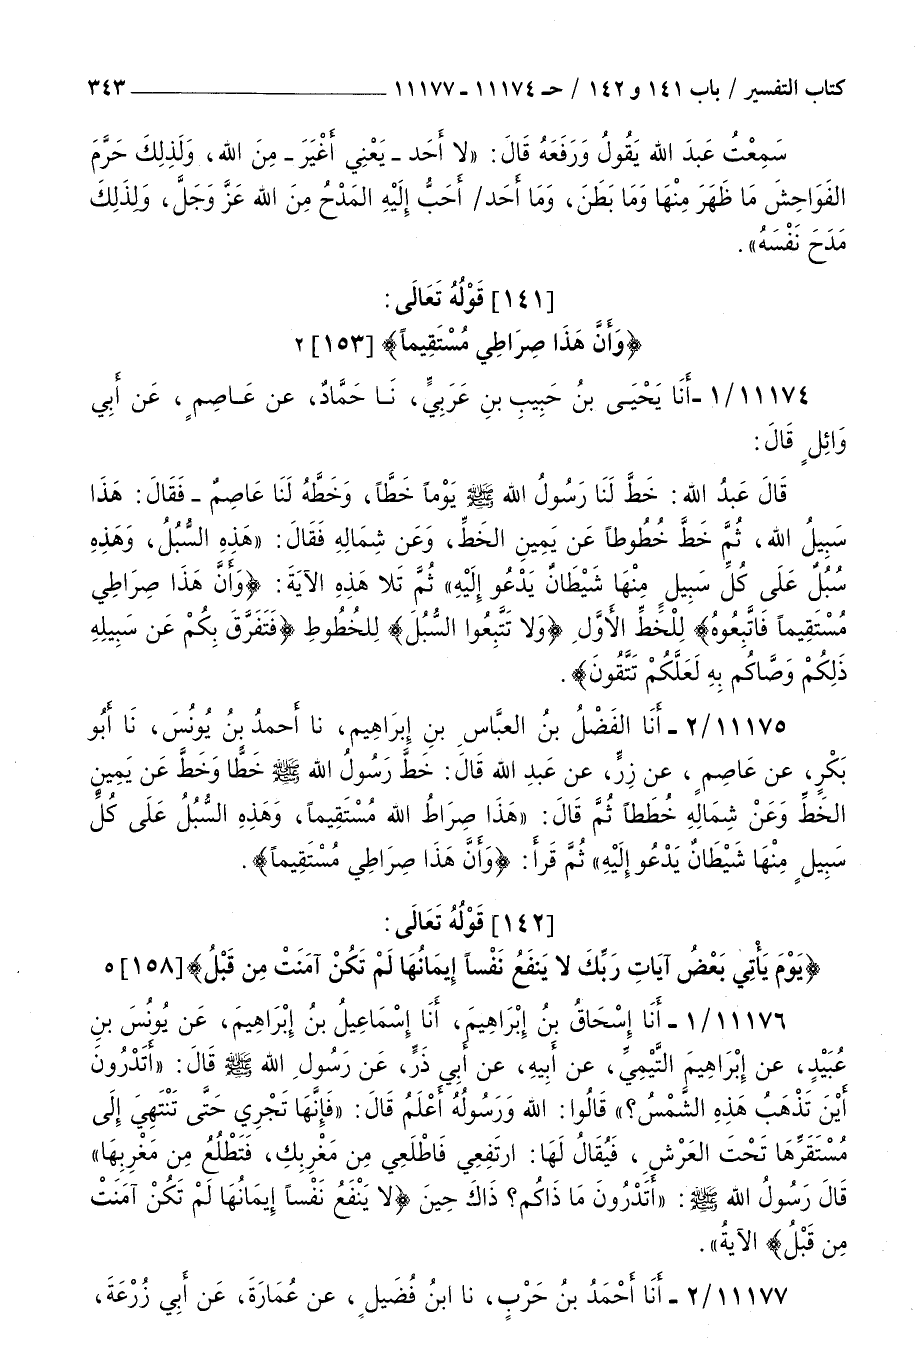 كتاب التفسير / باب ١٤١ و ١٤٢ / حـ ١١١٧٤ ـ ١١١٧٧ ٣٤٣
سَمِعْتُ عَبدَ الله يَقُولُ وَرَفَعَهُ قَالَ: «لا أَحَد ـ يَعْني أَغْيَرَ ـ مِنَ الله، وَلَذِلِكَ حَرَّمَ
الفَوَاحِشَ مَا ظَهَرَ مِنْهَا وَمَا بَطَنَ، وَمَا أَحَد/ أَحَبُّ إِلَيْهِ المَدْحُ مِنَ الله عَزَّ وَجَلَّ، وَلِذَلِكَ
مَدَحَ نَفْسَهُ».
[١٤١] قَوْلُهُ تَعَالَى:
﴿وَأَنَّ هَذَا صِرَاطِي مُسْتَقِيماً﴾ [١٥٣] ٢
١/١١١٧٤ ـ أَنَا يَحْيَـى بنُ حَبِيبِ بنِ عَرَبِيٍّ، نَـا حَمَّادٌ، عن عَـاصِمٍ، عَن أَبي
وَائِلٍ قَالَ:
قَالَ عَبدُ الله: خَطَّ لَنَا رَسُولُ الله ﷺ يَوْماً خَطَّاً، وَخَطَّهُ لَنَا عَاصِمٌ ـ فَقَالَ: هَذَا
سَبِيلُ الله، ثُمَّ خَطَّ خُطُوطاً عَن يَمِينِ الخَطِّ، وَعَن شمَالِهِ فَقَالَ: «هَذِهِ السُّبُلُ، وَهَذِهِ
سُبُلٌ عَلَى كُلِّ سَبِيلٍ مِنْهَا شَيْطَانٌ يَدْعُو إِلَيْهِ» ثُمَّ تَلا هَذِهِ الآيَةَ: ﴿وَأَنَّ هَذَا صِرَاطِي
مُسْتَقِيماً فَاتَّبِعُوهُ﴾ لِلْخَطِّ الأَوَّلِ ﴿وَلا تَتَّبِعُوا السُّبُلَ﴾ لِلخُطُوطِ ﴿فَتَفَرَّقَ بِكُمْ عَن سَبِيلِهِ
ذَلِكُمْ وَصَّاكُم بِهِ لَعَلَّكُمْ تَتَّقُونَ﴾.
٢/١١١٧٥ ـ أَنَا الفَضْلُ بنُ العَبَّاسِ بنِ إِبرَاهِيم، نا أَحمدُ بنُ يُونُسَ، نَا أَبُو
بَكْرٍ، عن عَاصِمٍ، عن زِرٍّ، عن عَبدِ الله قَالَ: خَطَّ رَسُولُ الله ﷺ خَطَّا وَخَطَّ عَن يَمِينِ
الخَطِّ وَعَنْ شِمَالِهِ خُطَطاً ثُمَّ قَالَ: «هَذَا صِرَاطُ الله مُسْتَقِيماً، وَهَذِهِ السُّبُلُ عَلَى كُلِّ
سَبِيلٍ مِنْهَا شَيْطَانٌ يَدْعُو إِلَيْهِ» ثُمَّ قَرأَ: ﴿وَأَنَّ هَذَا صِرَاطِي مُسْتَقِيماً﴾.
[١٤٢] قَوْلُهُ تَعَالَى:
﴿يَوْمَ يَأْتِي بَعْضُ آيَاتِ رَبِّكَ لا يَنفَعُ نَفْساً إِيمَانُهَا لَمْ تَكُنْ آمَنَتْ مِن قَبْلُ﴾[١٥٨] ٥
١/١١١٧٦ ـ أَنَا إِسْحَاقُ بنُ إِبْرَاهِيمَ، أَنَا إِسْمَاعِيلُ بنُ إِبْرَاهِيمَ، عَن يُونُسَ بنِ
عُبَيْدٍ، عن إِبْرَاهِيمَ التَّيْمِيِّ، عن أَبِيهِ، عن أَبي ذَرٍّ، عَن رَسُولِ الله ﷺ قَالَ: «أَتَدْرُونَ
أَيْنَ تَذْهَبُ هَذِهِ الشَّمْسُ؟» قَالُوا: الله وَرَسُولُهُ أَعْلَمُ قَالَ: «فَإِنَّهَا تَجْرِي حَتَّى تَنْتَهِيَ إِلَى
مُسْتَقَرِّهَا تَحْتَ العَرْشِ، فَيُقَالُ لَهَا: ارتَفِعِي فَاطْلَعِي مِن مَغْرِبِكِ، فَتَطْلُعُ مِن مَغْرِبِهَا»
قَالَ رَسُولُ الله ﷺ: «أَتَدْرُونَ مَا ذَاكُم؟ ذَاكَ حِينَ ﴿لا يَنْفَعُ نَفْساً إِيمَانُهَا لَمْ تَكُنْ آمَنَتْ
مِن قَبْلُ﴾ الآيةُ».
٢/١١١٧٧ ـ أَنَا أَحْمَدُ بنُ حَرْبٍ، نا ابنُ فُضَيلٍ، عن عُمَارَةَ، عَن أَبي زُرْعَةَ،